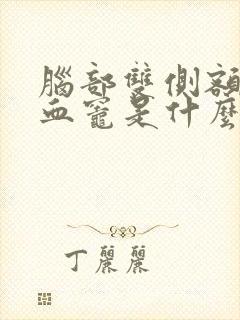 腦部雙側額
血竈是什麼
丁麗麗